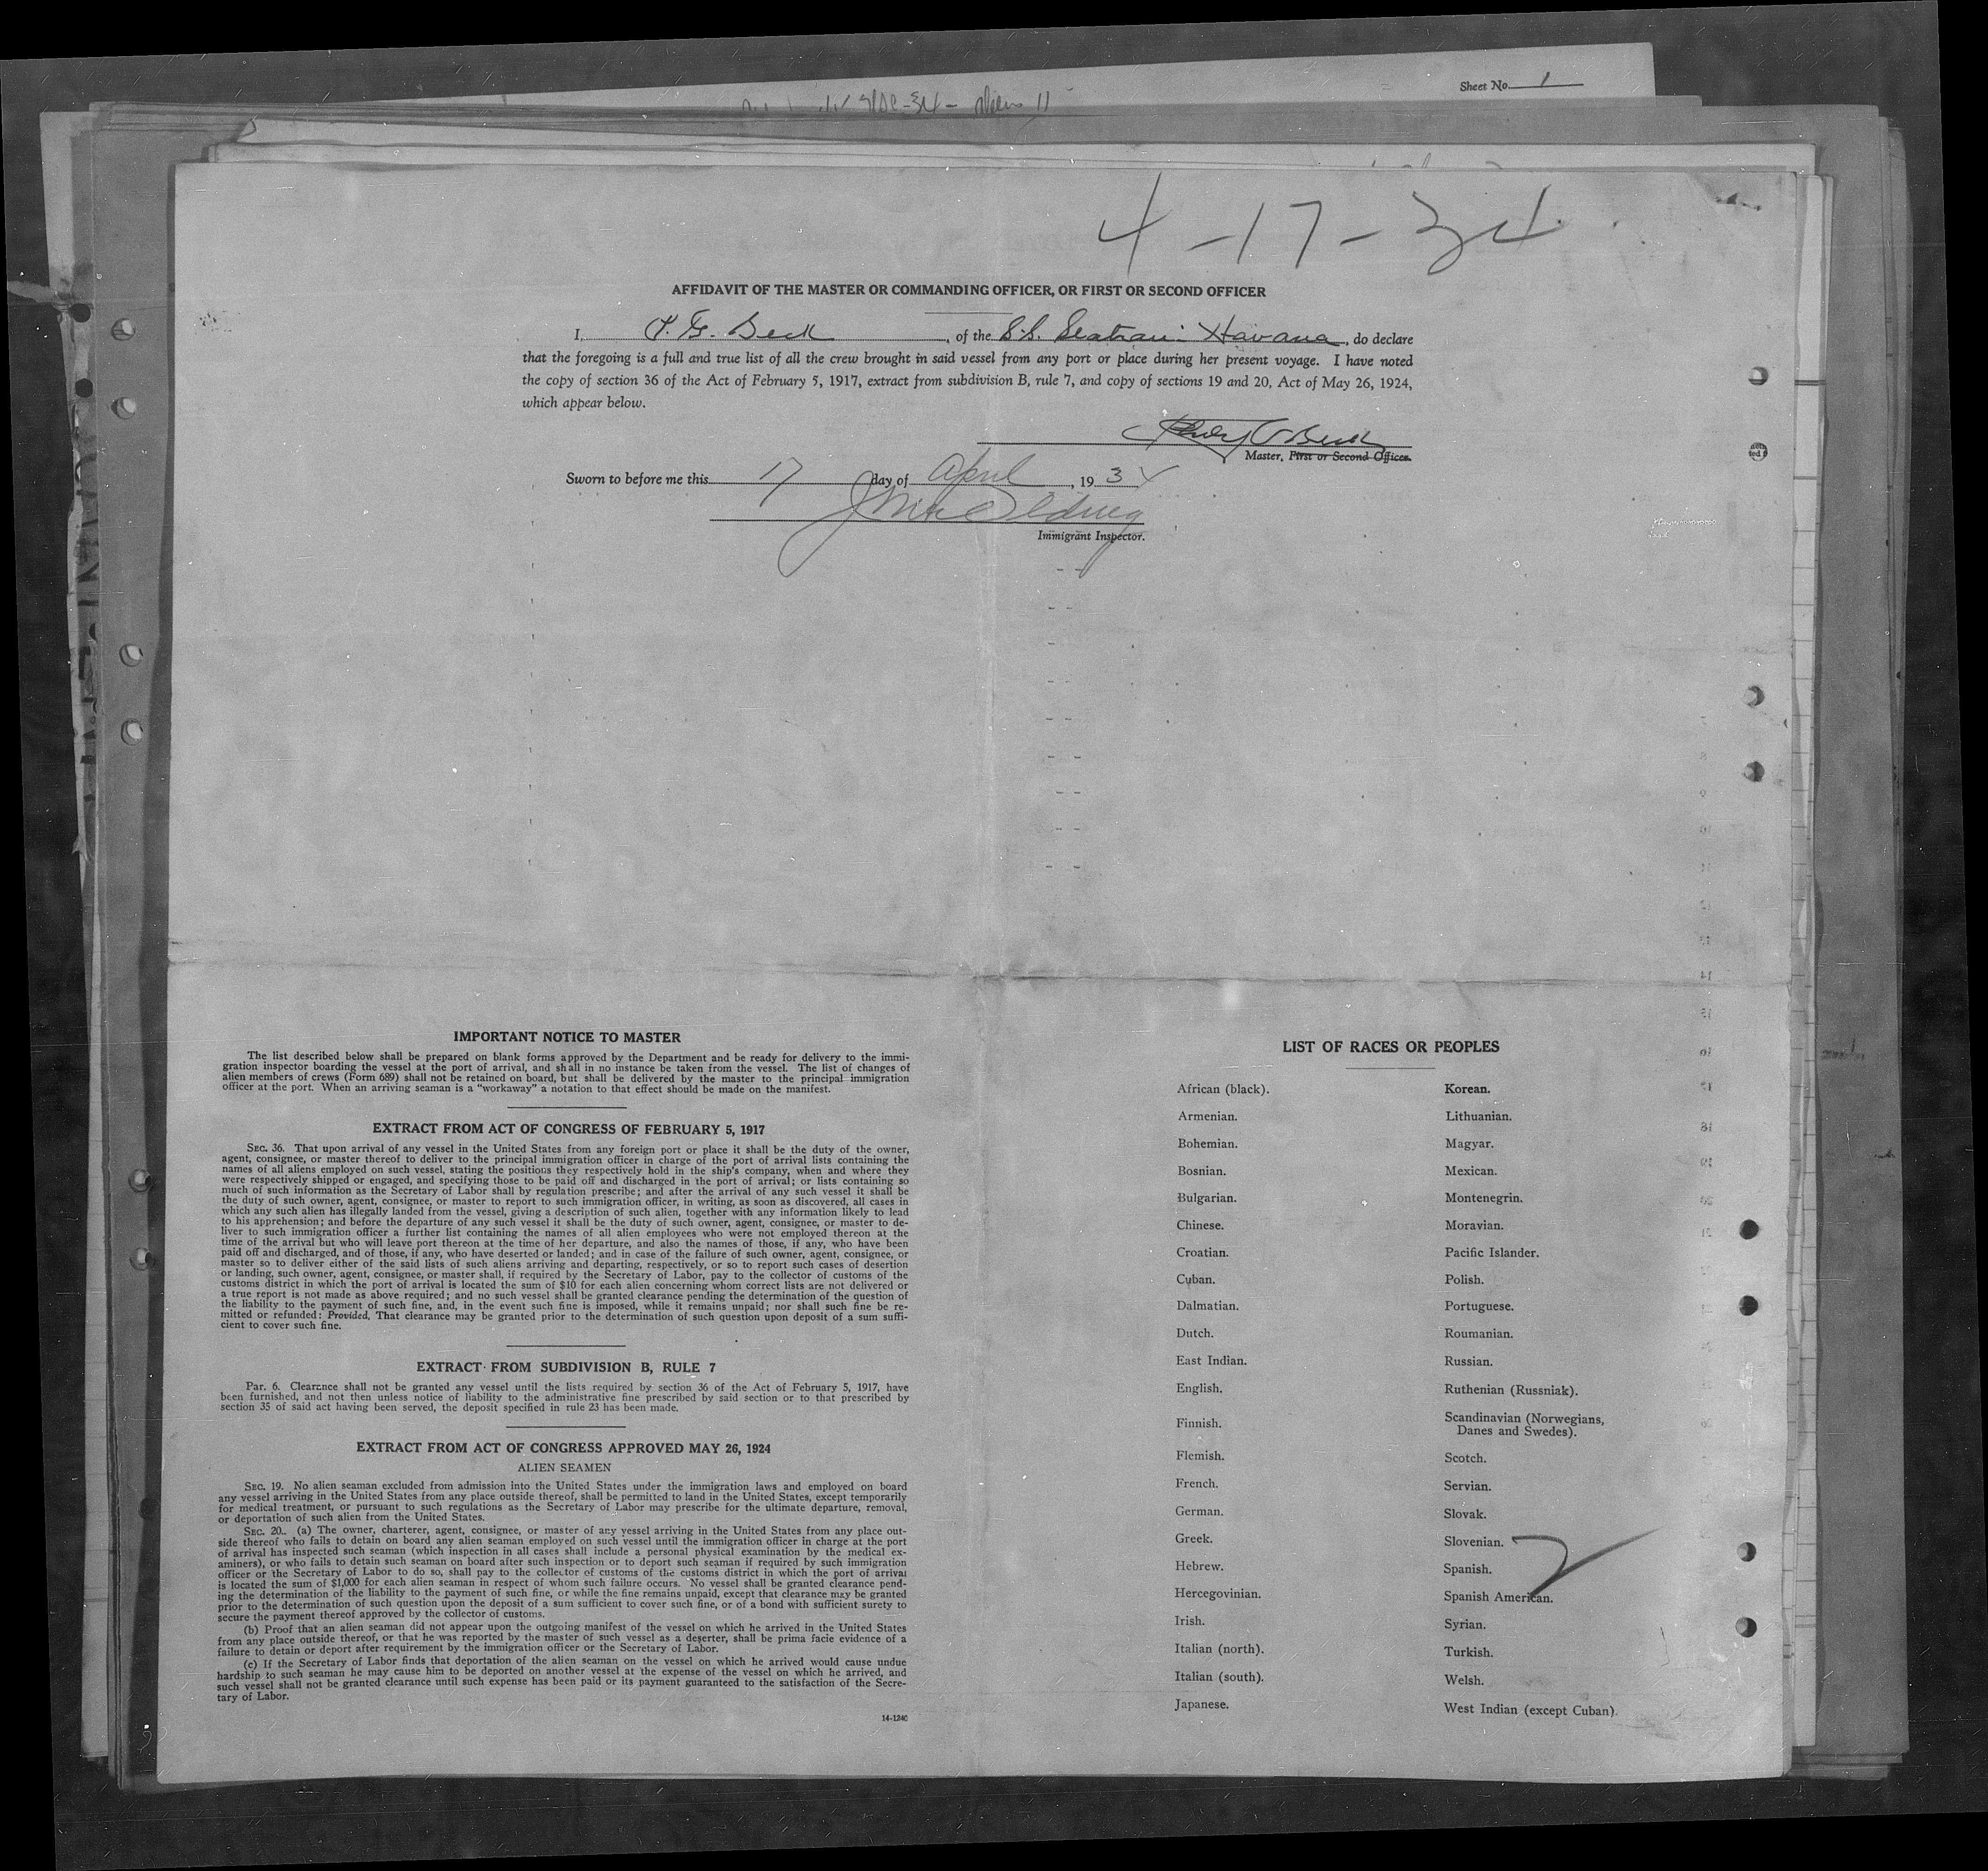 Sheet No. 1
4-17-34
AFFIDAVIT OF THE MASTER OR COMMANDING OFFICER, OR FIRST OR SECOND OFFICER
I, Beck, of the S.S. Seatrain Havana, do declare
that the foregoing is a full and true list of all the crew brought in said vessel from any port or place during her present voyage. I have noted
the copy of section 36 of the Act of February 5, 1917, extract from subdivision B, rule 7, and copy of sections 19 and 20, Act of May 26, 1924,
which appear below.
Beck
Master, First or Second Officer.
Sworn to before me this 17 day of April, 1934
Immigrant Inspector.
IMPORTANT NOTICE TO MASTER
The list described below shall be prepared on blank forms approved by the Department and be ready for delivery to the immi-
gration inspector boarding the vessel at the port of arrival, and shall in no instance be taken from the vessel. The list of changes of
alien members of crews (Form 689) shall not be retained on board, but shall be delivered by the master to the principal immigration
officer at the port. When an arriving seaman is a "workaway" a notation to that effect should be made on the manifest.
EXTRACT FROM ACT OF CONGRESS OF FEBRUARY 5, 1917
SEC. 36. That upon arrival of any vessel in the United States from any foreign port or place it shall be the duty of the owner,
agent, consignee, or master thereof to deliver to the principal immigration officer in charge of the port of arrival lists containing the
names of all aliens employed on such vessel, stating the positions they respectively hold in the ship's company, when and where they
were respectively shipped or engaged, and specifying those to be paid off and discharged in the port of arrival; or lists containing so
much of such information as the Secretary of Labor shall by regulation prescribe; and after the arrival of any such vessel it shall be
the duty of such owner, agent, consignee, or master to report to such immigration officer, in writing, as soon as discovered, all cases in
which any such alien has illegally landed from the vessel, giving a description of such alien, together with any information likely to lead
to his apprehension; and before the departure of any such vessel it shall be the duty of such owner, agent, consignee, or master to de-
liver to such immigration officer a further list containing the names of all alien employees who were not employed thereon at the
time of the arrival but who will leave port thereon at the time of her departure, and also the names of those, if any, who have been
paid off and discharged, and of those, if any, who have deserted or landed; and in case of the failure of such owner, agent, consignee, or
master so to deliver either of the said lists of such aliens arriving and departing, respectively, or so to report such cases of desertion
or landing, such owner, agent, consignee, or master shall, if required by the Secretary of Labor, pay to the collector of customs of the
customs district in which the port of arrival is located the sum of $10 for each alien concerning whom correct lists are not delivered or
a true report is not made as above required; and no such vessel shall be granted clearance pending the determination of the question of
the liability to the payment of such fine, and, in the event such fine is imposed, while it remains unpaid; nor shall such fine be re-
mitted or refunded: Provided, That clearance may be granted prior to the determination of such question upon deposit of a sum suffi-
cient to cover such fine.
EXTRACT FROM SUBDIVISION B, RULE 7
Par. 6. Clearance shall not be granted any vessel until the lists required by section 36 of the Act of February 5, 1917, have
been furnished, and not then unless notice of liability to the administrative fine prescribed by said section or to that prescribed by
section 35 of said act having been served, the deposit specified in rule 23 has been made.
EXTRACT FROM ACT OF CONGRESS APPROVED MAY 26, 1924
ALIEN SEAMEN
SEC. 19. No alien seaman excluded from admission into the United States under the immigration laws and employed on board
any vessel arriving in the United States from any place outside thereof, shall be permitted to land in the United States, except temporarily
for medical treatment, or pursuant to such regulations as the Secretary of Labor may prescribe for the ultimate departure, removal,
or deportation of such alien from the United States.
SEC. 20. (a) The owner, charterer, agent, consignee, or master of any vessel arriving in the United States from any place out-
side thereof who fails to detain on board any alien seaman employed on such vessel until the immigration officer in charge at the port
of arrival has inspected such seaman (which inspection in all cases shall include a personal physical examination by the medical ex-
aminers), or who fails to detain such seaman on board after such inspection or to deport such seaman if required by such immigration
officer or the Secretary of Labor to do so, shall pay to the collector of customs of the customs district in which the port of arrival
is located the sum of $1,000 for each alien seaman in respect of whom such failure occurs. No vessel shall be granted clearance pend-
ing the determination of the liability to the payment of such fine, or while the fine remains unpaid, except that clearance may be granted
prior to the determination of such question upon the deposit of a sum sufficient to cover such fine, or of a bond with sufficient surety to
secure the payment thereof approved by the collector of customs.
(b) Proof that an alien seaman did not appear upon the outgoing manifest of the vessel on which he arrived in the United States
from any place outside thereof, or that he was reported by the master of such vessel as a deserter, shall be prima facie evidence of a
failure to detain or deport after requirement by the immigration officer or the Secretary of Labor.
(c) If the Secretary of Labor finds that deportation of the alien seaman on the vessel on which he arrived would cause undue
hardship to such seaman he may cause him to be deported on another vessel at the expense of the vessel on which he arrived, and
such vessel shall not be granted clearance until such expense has been paid or its payment guaranteed to the satisfaction of the Secre-
tary of Labor.
14-1240
LIST OF RACES OR PEOPLES
African (black).
Armenian.
Bohemian.
Bosnian.
Bulgarian.
Chinese.
Croatian.
Cuban.
Dalmatian.
Dutch.
East Indian.
English.
Finnish.
Flemish.
French.
German.
Greek.
Hebrew.
Hercegovinian.
Irish.
Italian (north).
Italian (south).
Japanese.
Korean.
Lithuanian.
Magyar.
Mexican.
Montenegrin.
Moravian.
Pacific Islander.
Polish.
Portuguese.
Roumanian.
Russian.
Ruthenian (Russniak).
Scandinavian (Norwegians,
Danes and Swedes).
Scotch.
Servian.
Slovak.
Slovenian.
Spanish.
Spanish American.
Syrian.
Turkish.
Welsh.
West Indian (except Cuban).